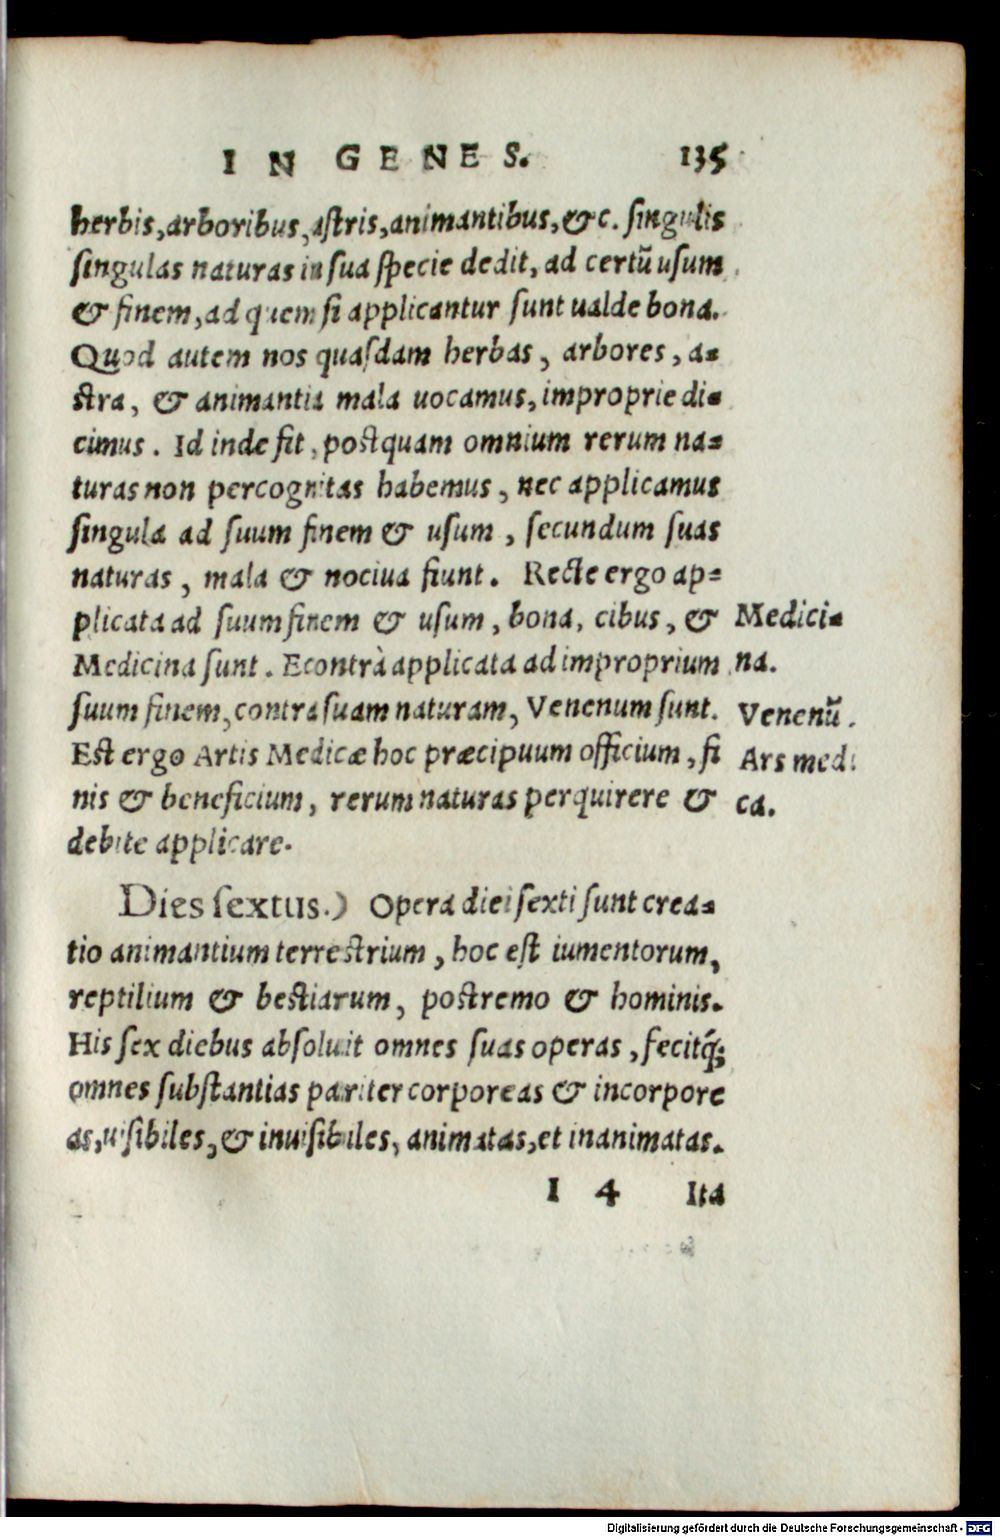 IN GENES. 135
herbis, arboribus, astris, animantibus, &c. singulis
singulas naturas in sua specie dedit, ad certũ usum
& finem, ad quem si applicantur sunt ualde bona.
Quod autem nos quasdam herbas, arbores, a-
stra, & animantia mala uocamus, improprie di-
cimus. Id inde fit, postquam omnium rerum na-
turas non percognitas habemus, nec applicamus
singula ad suum finem & usum, secundum suas
naturas, mala & nociua fiunt. Recte ergo ap-
plicata ad suum finem & usum, bona, cibus, &
Medicina sunt. Econtrà applicata ad improprium
suum finem, contra suam naturam, Venenum sunt.
Est ergo Artis Medicæ hoc præcipuum officium, fi
nis & beneficium, rerum naturas perquirere &
debite applicare.
Medici-
na.
Venenũ.
Ars medi
ca.
Dies sextus.) Opera diei sexti sunt crea-
tio animantium terrestrium, hoc est iumentorum,
reptilium & bestiarum, postremo & hominis.
His sex diebus absoluit omnes suas operas, fecitq́;
omnes substantias pariter corporeas & incorpore
as, uisibiles, & inuisibiles, animatas, et inanimatas.
I 4 Ita
Digitalisierung gefördert durch die Deutsche Forschungsgemeinschaft - DFG